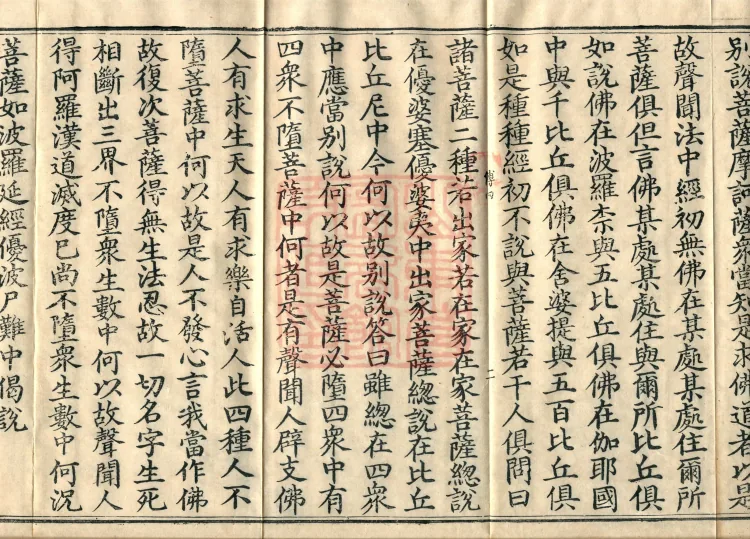 別說菩薩摩訶薩衆當知是求佛道者以是
故聲聞法中經初無佛在某處某處住爾所
菩薩俱但言佛某處某處住與爾所比丘俱
如說佛在波羅柰與五比丘俱佛在伽耶國
中與千比丘俱佛在舍婆提與五百比丘俱
如是種種經初不說與菩薩若干人俱問曰
諸菩薩二種若出家若在家在家菩薩總說
在優婆塞優婆夷中出家菩薩總說在比丘
比丘尼中今何以故別說答曰雖總在四衆
中應當別說何以故是菩薩必墮四衆中有
四衆不墮菩薩中何者是有聲聞人辟支佛
人有求生天人有求樂自活人此四種人不
墮菩薩中何以故是人不發心言我當作佛
故復次菩薩得無生法忍故一切名字生死
相斷出三界不墮衆生數中何以故聲聞人
得阿羅漢道滅度已尚不墮衆生數中何況
菩薩如波羅延經優波尸難中偈說
傅四
二